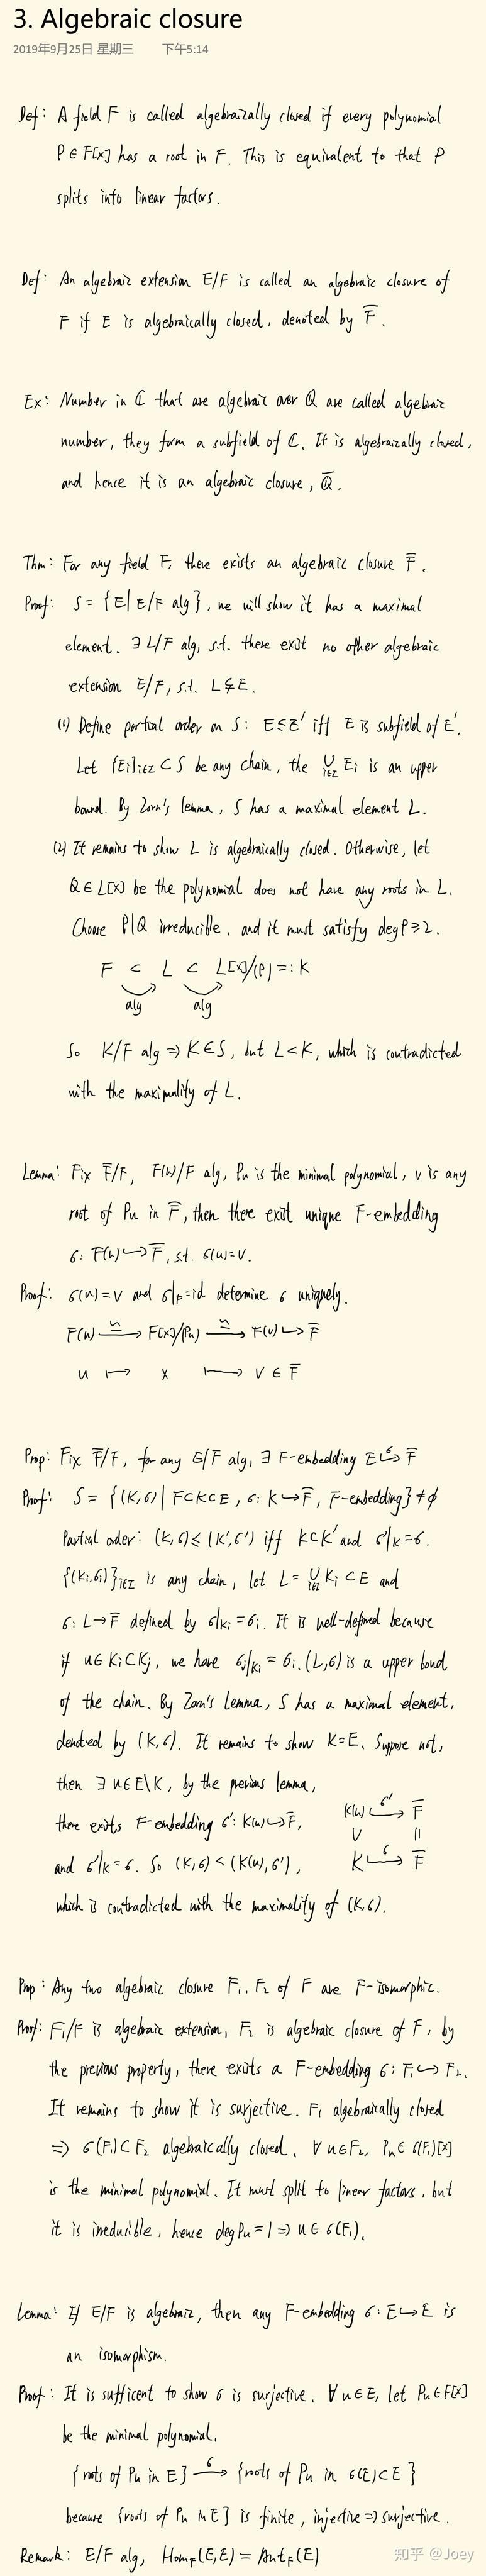 3. Algebraic closure
2019年9月25日 星期三 下午5:14
Def: A field F is called algebraically closed if every polynomial
P ∈ F[x] has a root in F. This is equivalent to that P
splits into linear factors.
Def: An algebraic extension E/F is called an algebraic closure of
F if E is algebraically closed, denoted by F̅.
Ex: Number in ℂ that are algebraic over ℚ are called algebraic
number, they form a subfield of ℂ. It is algebraically closed,
and hence it is an algebraic closure, ℚ̅.
Thm: For any field F, there exists an algebraic closure F̅.
Proof: S = {E | E/F alg}, we will show it has a maximal
element. ∃ L/F alg, s.t. there exist no other algebraic
extension E/F, s.t. L⊊E.
(1) Define partial order on S: E≤E' iff E is subfield of E'.
Let {Ei}i∈I ⊂ S be any chain, the ∪i∈I Ei is an upper
bound. By Zorn's lemma, S has a maximal element L.
(2) It remains to show L is algebraically closed. Otherwise, let
Q∈L[x] be the polynomial does not have any roots in L.
Choose P|Q irreducible, and it must satisfy degP≥2.
F ⊂ L ⊂ L[x]/(P) =: K
alg alg
So K/F alg ⇒ K∈S, but L<K, which is contradicted
with the maximality of L.
Lemma: Fix F̅/F, F(u)/F alg, Pu is the minimal polynomial, v is any
root of Pu in F̅, then there exist unique F-embedding
σ: F(u)↪F̅, s.t. σ(u)=v.
Proof: σ(u)=v and σ|F=id determine σ uniquely.
F(u) ≅→ F[x]/(Pu) ≅→ F(v) ↪ F̅
u ↦ x ↦ v ∈ F̅
Prop: Fix F̅/F, for any E/F alg, ∃ F-embedding E σ↪ F̅
Proof: S = {(K,σ) | F⊂K⊂E, σ: K↪F̅, F-embedding} ≠ ϕ
Partial order: (K,σ)≤(K',σ') iff K⊂K' and σ'|K=σ.
{(Ki,σi)}i∈I is any chain, let L= ∪i∈I Ki ⊂ E and
σ: L→F̅ defined by σ|Ki=σi. It is well-defined because
if u∈Ki⊂Kj, we have σj|Ki=σi. (L,σ) is a upper bond
of the chain. By Zorn's Lemma, S has a maximal element,
denoted by (K,σ). It remains to show K=E. Suppose not,
then ∃ u∈E\K, by the previous lemma,
there exits F-embedding σ': K(u)↪F̅,
and σ'|K=σ. So (K,σ)<(K(u),σ'),
K(u) σ'↪ F̅
∪ ||
K σ↪ F̅
which is contradicted with the maximality of (K,σ).
Prop: Any two algebraic closure F1, F2 of F are F-isomorphic.
Proof: F1/F is algebraic extension, F2 is algebraic closure of F, by
the previous property, there exits a F-embedding σ: F1↪F2.
It remains to show it is surjective. F1 algebraically closed
⇒ σ(F1)⊂F2 algebraically closed. ∀ u∈F2, Pu∈σ(F1)[x]
is the minimal polynomial. It must split to linear factors, but
it is irreducible, hence degPu=1 ⇒ u∈σ(F1).
Lemma: If E/F is algebraic, then any F-embedding σ: E↪E is
an isomorphism.
Proof: It is sufficent to show σ is surjective. ∀ u∈E, let Pu∈F[x]
be the minimal polynomial.
{roots of Pu in E} σ→ {roots of Pu in σ(E)⊂E}
because {roots of Pu in E} is finite, injective ⇒ surjective.
Remark: E/F alg, HomF(E,E) = AutF(E)
知乎 @Joey